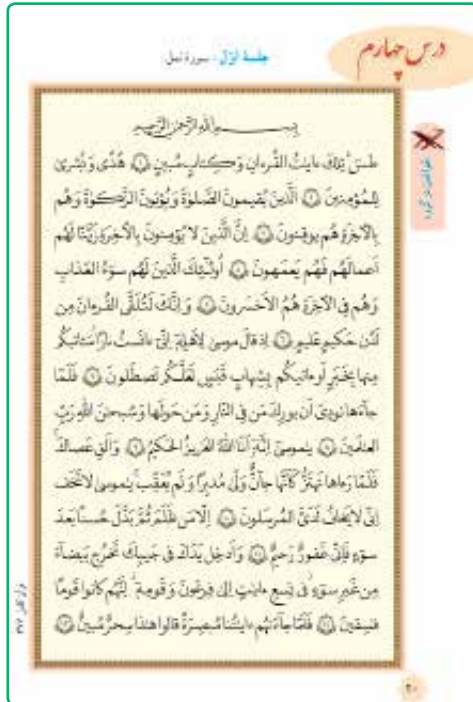 درس چهارم
جلسهٔ اوّل : سورهٔ نمل
بِسمِ اللهِ الرَّحمٰنِ الرَّحيمِ
طسٓ تِلكَ ءايٰتُ القُرءانِ وَ كِتابٍ مُبينٍ ١ هُدًى وَ بُشرىٰ
لِلمُؤمِنينَ ٢ اَلَّذينَ يُقيمونَ الصَّلوٰةَ وَ يُؤتونَ الزَّكوٰةَ وَ هُم
بِالآخِرَةِ هُم يوقِنونَ ٣ اِنَّ الَّذينَ لا يُؤمِنونَ بِالآخِرَةِ زَيَّنّا لَهُم
اَعمالَهُم فَهُم يَعمَهونَ ٤ اُولٰئِكَ الَّذينَ لَهُم سوٓءُ العَذابِ
وَ هُم فِي الآخِرَةِ هُمُ الاَخسَرونَ ٥ وَ اِنَّكَ لَتُلَقَّى القُرءانَ مِن
لَدُن حَكيمٍ عَليمٍ ٦ اِذ قالَ موسىٰ لِاَهلِهٖ اِنّي ءانَستُ نارًا سَـٔاتيكُم
مِنها بِخَبَرٍ اَو ءاتيكُم بِشِهابٍ قَبَسٍ لَعَلَّكُم تَصطَلونَ ٧ فَلَمّا
جآءَها نودِيَ اَن بورِكَ مَن فِي النّارِ وَ مَن حَولَها وَ سُبحٰنَ اللهِ رَبِّ
العٰلَمينَ ٨ يٰموسىٰ اِنَّهٗ اَنَا اللهُ العَزيزُ الحَكيمُ ٩ وَ اَلقِ عَصاكَ
فَلَمّا رَءاها تَهتَزُّ كَاَنَّها جآنٌّ وَلّىٰ مُدبِرًا وَ لَم يُعَقِّب يٰموسىٰ لا تَخَف
اِنّي لا يَخافُ لَدَيَّ المُرسَلونَ ١٠ اِلّا مَن ظَلَمَ ثُمَّ بَدَّلَ حُسنًا بَعدَ
سوٓءٍ فَاِنّي غَفورٌ رَحيمٌ ١١ وَ اَدخِل يَدَكَ في جَيبِكَ تَخرُج بَيضآءَ
مِن غَيرِ سوٓءٍ في تِسعِ ءايٰتٍ اِلىٰ فِرعَونَ وَ قَومِهٖ اِنَّهُم كانوا قَومًا
فٰسِقينَ ١٢ فَلَمّا جآءَتهُم ءايٰتُنا مُبصِرَةً قالوا هٰذا سِحرٌ مُبينٌ ١٣
٢٠